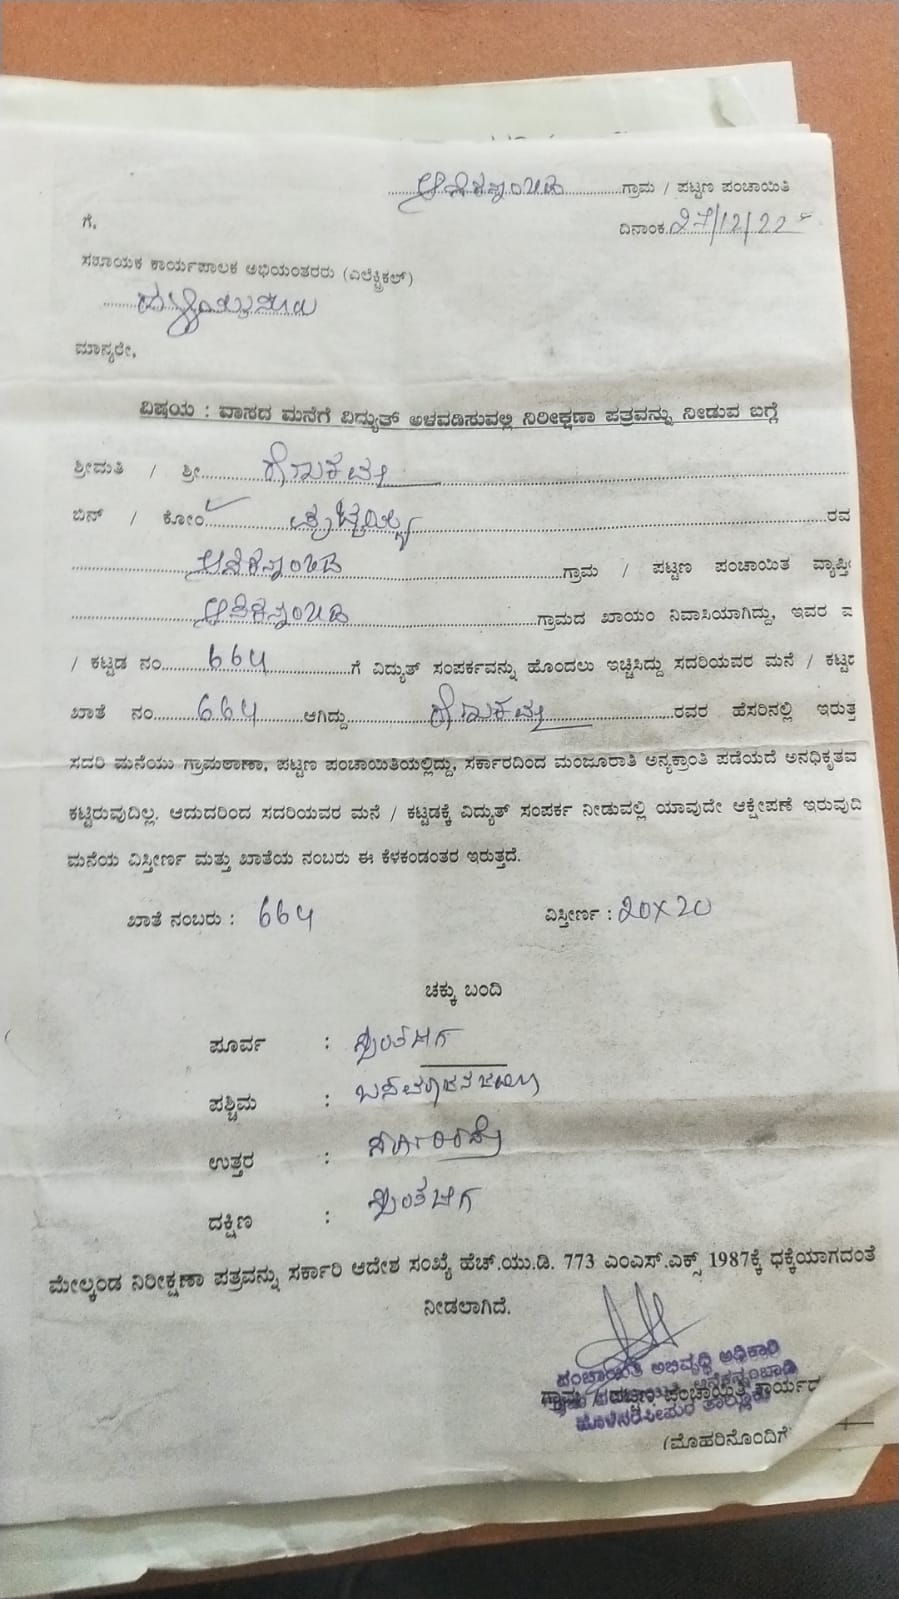 ಆನೆಕನ್ನಂಬಾಡಿ ಗ್ರಾಮ / ಪಟ್ಟಣ ಪಂಚಾಯಿತಿ
ದಿನಾಂಕ 27/12/22
ಗೆ,
ಸಹಾಯಕ ಕಾರ್ಯಪಾಲಕ ಅಭಿಯಂತರರು (ಎಲೆಕ್ಟ್ರಿಕಲ್)
ಮಾನ್ಯರೇ,
ವಿಷಯ : ವಾಸದ ಮನೆಗೆ ವಿದ್ಯುತ್ ಅಳವಡಿಸುವಲ್ಲಿ ನಿರೀಕ್ಷಣಾ ಪತ್ರವನ್ನು ನೀಡುವ ಬಗ್ಗೆ
ಶ್ರೀಮತಿ / ಶ್ರೀ
ಬಿನ್ / ಕೋಂ ರವ
ಆನೆಕನ್ನಂಬಾಡಿ ಗ್ರಾಮ / ಪಟ್ಟಣ ಪಂಚಾಯಿತ ವ್ಯಾಪ್ತಿ
ಆನೆಕನ್ನಂಬಾಡಿ ಗ್ರಾಮದ ಖಾಯಂ ನಿವಾಸಿಯಾಗಿದ್ದು, ಇವರ ಮ
/ ಕಟ್ಟಡ ನಂ 664 ಗೆ ವಿದ್ಯುತ್ ಸಂಪರ್ಕವನ್ನು ಹೊಂದಲು ಇಚ್ಚಿಸಿದ್ದು ಸದರಿಯವರ ಮನೆ / ಕಟ್ಟಡ
ಖಾತೆ ನಂ 664 ಆಗಿದ್ದು ರವರ ಹೆಸರಿನಲ್ಲಿ ಇರುತ್ತ
ಸದರಿ ಮನೆಯು ಗ್ರಾಮಠಾಣಾ, ಪಟ್ಟಣ ಪಂಚಾಯಿತಿಯಲ್ಲಿದ್ದು, ಸರ್ಕಾರದಿಂದ ಮಂಜೂರಾತಿ ಅನ್ಯಕ್ರಾಂತಿ ಪಡೆಯದೆ ಅನಧಿಕೃತವ
ಕಟ್ಟಿರುವುದಿಲ್ಲ. ಆದುದರಿಂದ ಸದರಿಯವರ ಮನೆ / ಕಟ್ಟಡಕ್ಕೆ ವಿದ್ಯುತ್ ಸಂಪರ್ಕ ನೀಡುವಲ್ಲಿ ಯಾವುದೇ ಆಕ್ಷೇಪಣೆ ಇರುವುದಿ
ಮನೆಯ ವಿಸ್ತೀರ್ಣ ಮತ್ತು ಖಾತೆಯ ನಂಬರು ಈ ಕೆಳಕಂಡಂತರ ಇರುತ್ತದೆ.
ಖಾತೆ ನಂಬರು : 664 ವಿಸ್ತೀರ್ಣ : 20x20
ಚಕ್ಕು ಬಂದಿ
ಪೂರ್ವ : ಸ್ವಂತ ಜಾಗ
ಪಶ್ಚಿಮ :
ಉತ್ತರ :
ದಕ್ಷಿಣ : ಸ್ವಂತ ಜಾಗ
ಮೇಲ್ಕಂಡ ನಿರೀಕ್ಷಣಾ ಪತ್ರವನ್ನು ಸರ್ಕಾರಿ ಆದೇಶ ಸಂಖ್ಯೆ ಹೆಚ್.ಯು.ಡಿ. 773 ಎಂಎಸ್.ಎಕ್ಸ್ 1987ಕ್ಕೆ ಧಕ್ಕೆಯಾಗದಂತೆ
ನೀಡಲಾಗಿದೆ.
ಪಂಚಾಯಿತಿ ಅಭಿವೃದ್ಧಿ ಅಧಿಕಾರಿ
ಆನೆಕನ್ನಂಬಾಡಿ
ಗ್ರಾಮ / ಪಟ್ಟಣ ಪಂಚಾಯಿತಿ ಕಾರ್ಯದ
ಹೊಳೆನರಸೀಪುರ ತಾಲ್ಲೂಕು
(ಮೊಹರಿನೊಂದಿಗೆ